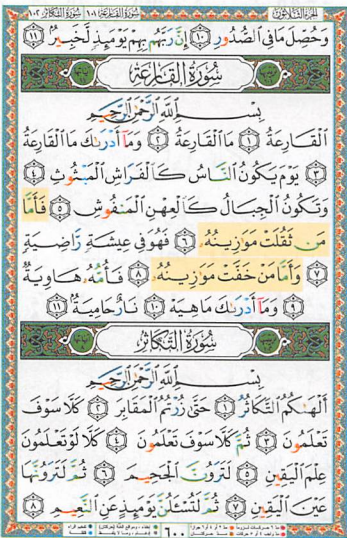 الجزء الثلاثون سورة القارعة ١٠١ سورة التكاثر ١٠٢
وَحُصِّلَ مَا فِي الصُّدُورِ ١٠ إِنَّ رَبَّهُم بِهِمْ يَوْمَئِذٍ لَّخَبِيرٌ ١١
سُورَةُ القَارِعَةِ
بِسْمِ اللَّهِ الرَّحْمَٰنِ الرَّحِيمِ
الْقَارِعَةُ ١ مَا الْقَارِعَةُ ٢ وَمَا أَدْرَىٰكَ مَا الْقَارِعَةُ
٣ يَوْمَ يَكُونُ النَّاسُ كَالْفَرَاشِ الْمَبْثُوثِ ٤
وَتَكُونُ الْجِبَالُ كَالْعِهْنِ الْمَنفُوشِ ٥ فَأَمَّا
مَن ثَقُلَتْ مَوَٰزِينُهُۥ ٦ فَهُوَ فِي عِيشَةٍ رَّاضِيَةٍ
٧ وَأَمَّا مَنْ خَفَّتْ مَوَٰزِينُهُۥ ٨ فَأُمُّهُۥ هَاوِيَةٌ
٩ وَمَا أَدْرَىٰكَ مَا هِيَهْ ١٠ نَارٌ حَامِيَةٌ ١١
سُورَةُ التَّكَاثُرِ
بِسْمِ اللَّهِ الرَّحْمَٰنِ الرَّحِيمِ
أَلْهَىٰكُمُ التَّكَاثُرُ ١ حَتَّىٰ زُرْتُمُ الْمَقَابِرَ ٢ كَلَّا سَوْفَ
تَعْلَمُونَ ٣ ثُمَّ كَلَّا سَوْفَ تَعْلَمُونَ ٤ كَلَّا لَوْ تَعْلَمُونَ
عِلْمَ الْيَقِينِ ٥ لَتَرَوُنَّ الْجَحِيمَ ٦ ثُمَّ لَتَرَوُنَّهَا
عَيْنَ الْيَقِينِ ٧ ثُمَّ لَتُسْـَٔلُنَّ يَوْمَئِذٍ عَنِ النَّعِيمِ ٨
٦٠٠